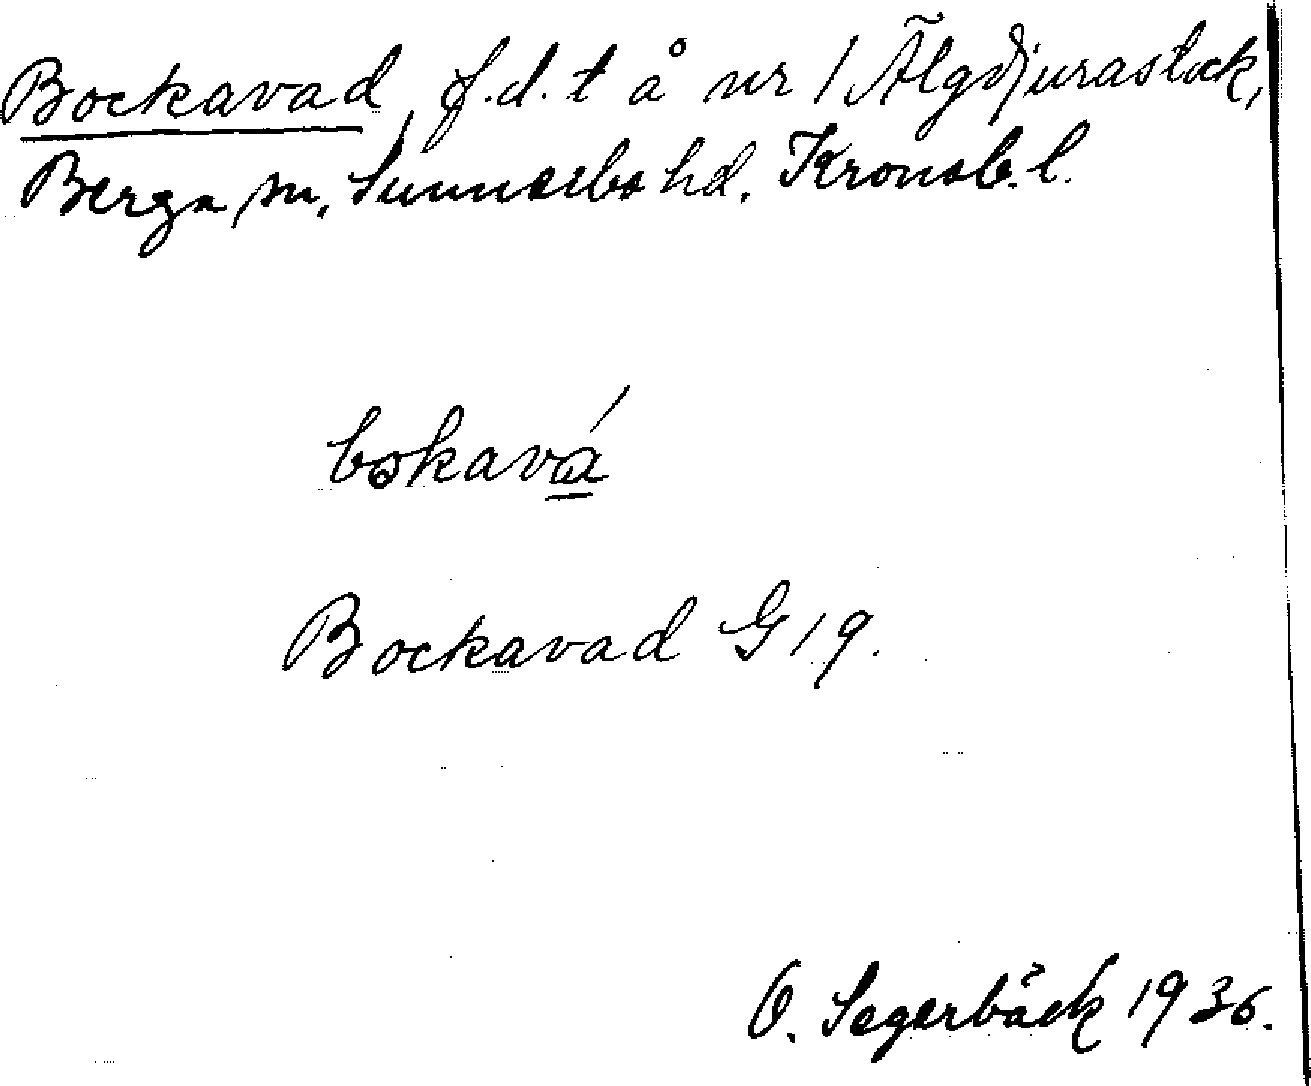 Bockavad, f.d. t å nr 1 Älgdjurastock,
Berga sn, Sunnerbo hd. Kronob. l.
bokavá
Bockavad G 19.
O. Segerbäck 1936.